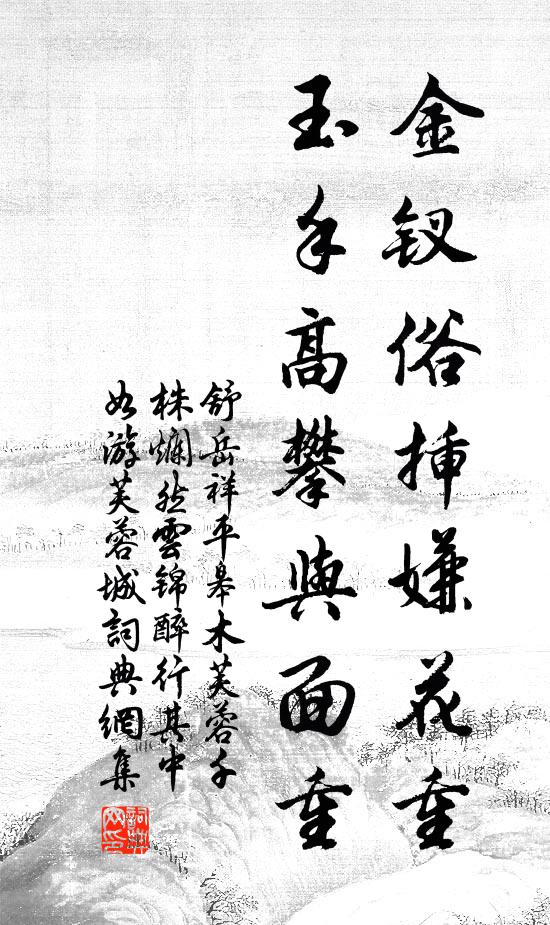 金釵俗揷嫌花重
玉手高攀與面重
舒岳祥平皋木芙蓉千
株爛然雲錦醉行其中
如游芙蓉城詞典網集